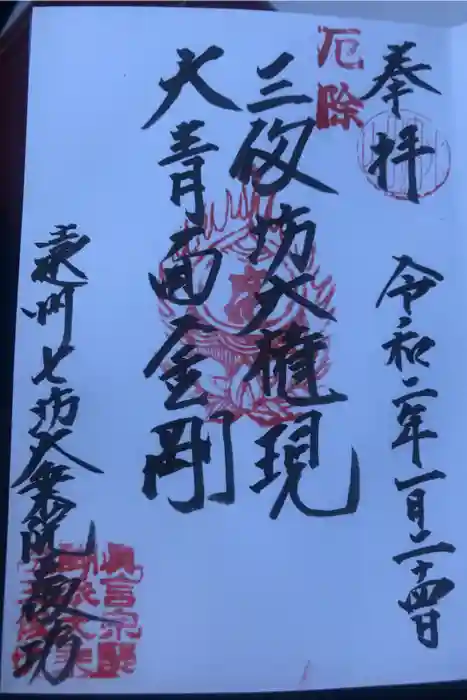 奉拝
厄除
令和二年一月二十四日
三仭坊大権現
大青面金剛
遠州七坊大乗院
真言宗